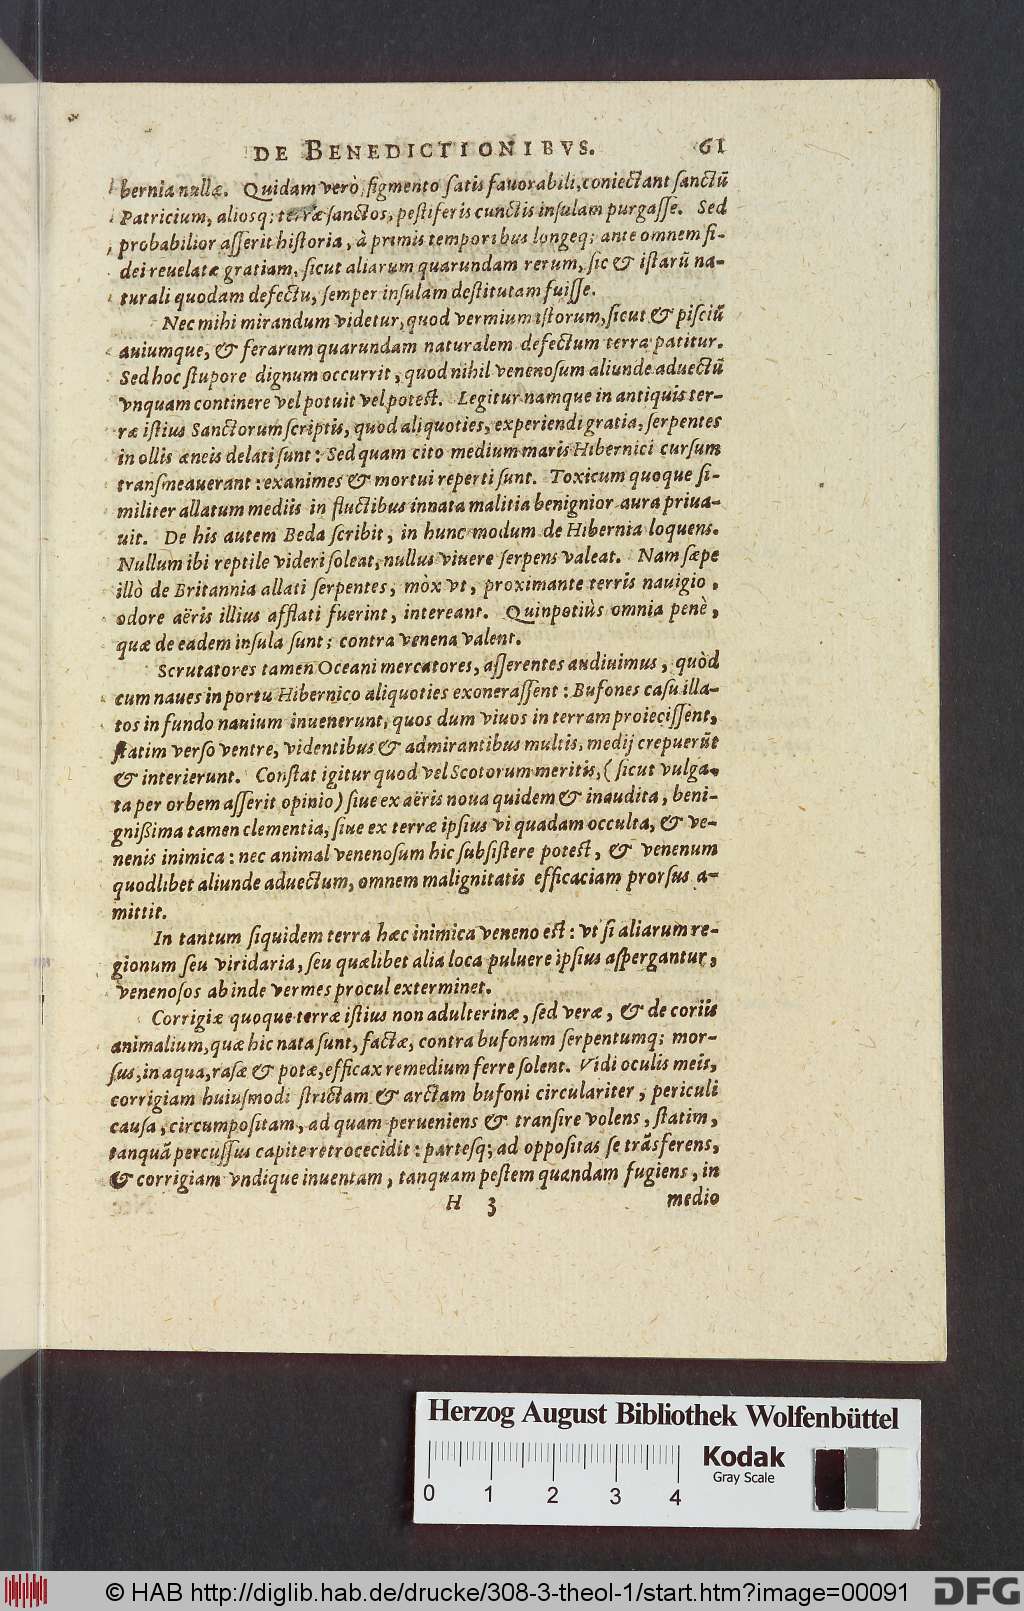 DE BENEDICTIONIBVS. 61
bernia nullæ. Quidam verò, figmento satis fauorabili, coniectant sanctũ
Patricium, aliosq; terræ sanctos, pestiferis cunctis insulam purgasse. Sed
probabilior asserit historia, à primis temporibus longeq; ante omnem fi-
dei reuelatæ gratiam, sicut aliarum quarundam rerum, sic & istarũ na-
turali quodam defectu, semper insulam destitutam fuisse.
Nec mihi mirandum videtur, quod vermium istorum, sicut & pisciũ
auiumque, & ferarum quarundam naturalem defectum terra patitur.
Sed hoc stupore dignum occurrit, quod nihil venenosum aliunde aduectũ
vnquam continere vel potuit vel potest. Legitur namque in antiquis ter-
ræ istius Sanctorum scriptis, quod aliquoties, experiendi gratia, serpentes
in ollis æneis delati sunt: Sed quam cito medium maris Hibernici cursum
transmeauerant: exanimes & mortui reperti sunt. Toxicum quoque si-
militer allatum mediis in fluctibus innata malitia benignior aura priua-
uit. De his autem Beda scribit, in hunc modum de Hibernia loquens.
Nullum ibi reptile videri soleat, nullus viuere serpens valeat. Nam sæpe
illò de Britannia allati serpentes, mòx vt, proximante terris nauigio,
odore aëris illius afflati fuerint, intereant. Quinpotiùs omnia penè,
quæ de eadem insula sunt; contra venena valent.
Scrutatores tamen Oceani mercatores, asserentes audiuimus, quòd
cum naues in portu Hibernico aliquoties exonerassent: Bufones casu illa-
tos in fundo nauium inuenerunt, quos dum viuos in terram proiecissent,
statim verso ventre, videntibus & admirantibus multis, medij crepuerũt
& interierunt. Constat igitur quod vel Scotorum meritis, (sicut vulga-
ta per orbem asserit opinio) siue ex aëris noua quidem & inaudita, beni-
gnißima tamen clementia, siue ex terræ ipsius vi quadam occulta, & ve-
nenis inimica: nec animal venenosum hic subsistere potest, & venenum
quodlibet aliunde aduectum, omnem malignitatis efficaciam prorsus a-
mittit.
In tantum siquidem terra hæc inimica veneno est: vt si aliarum re-
gionum seu viridaria, seu quælibet alia loca puluere ipsius aspergantur,
venenosos ab inde vermes procul exterminet.
Corrigiæ quoque terræ istius non adulterinæ, sed veræ, & de coriis
animalium, quæ hic nata sunt, factæ, contra bufonum serpentumq; mor-
sus, in aqua, rasæ & potæ, efficax remedium ferre solent. Vidi oculis meis,
corrigiam huiusmodi strictam & arctam bufoni circulariter, periculi
causa, circumpositam, ad quam perueniens & transire volens, statim,
tanquã percussus capite retrocecidit: partesq; ad oppositas se trãsferens,
& corrigiam vndique inuentam, tanquam pestem quandam fugiens, in
H 3 medio
Herzog August Bibliothek Wolfenbüttel
Kodak
Gray Scale
0 1 2 3 4
© HAB http://diglib.hab.de/drucke/308-3-theol-1/start.htm?image=00091
DFG